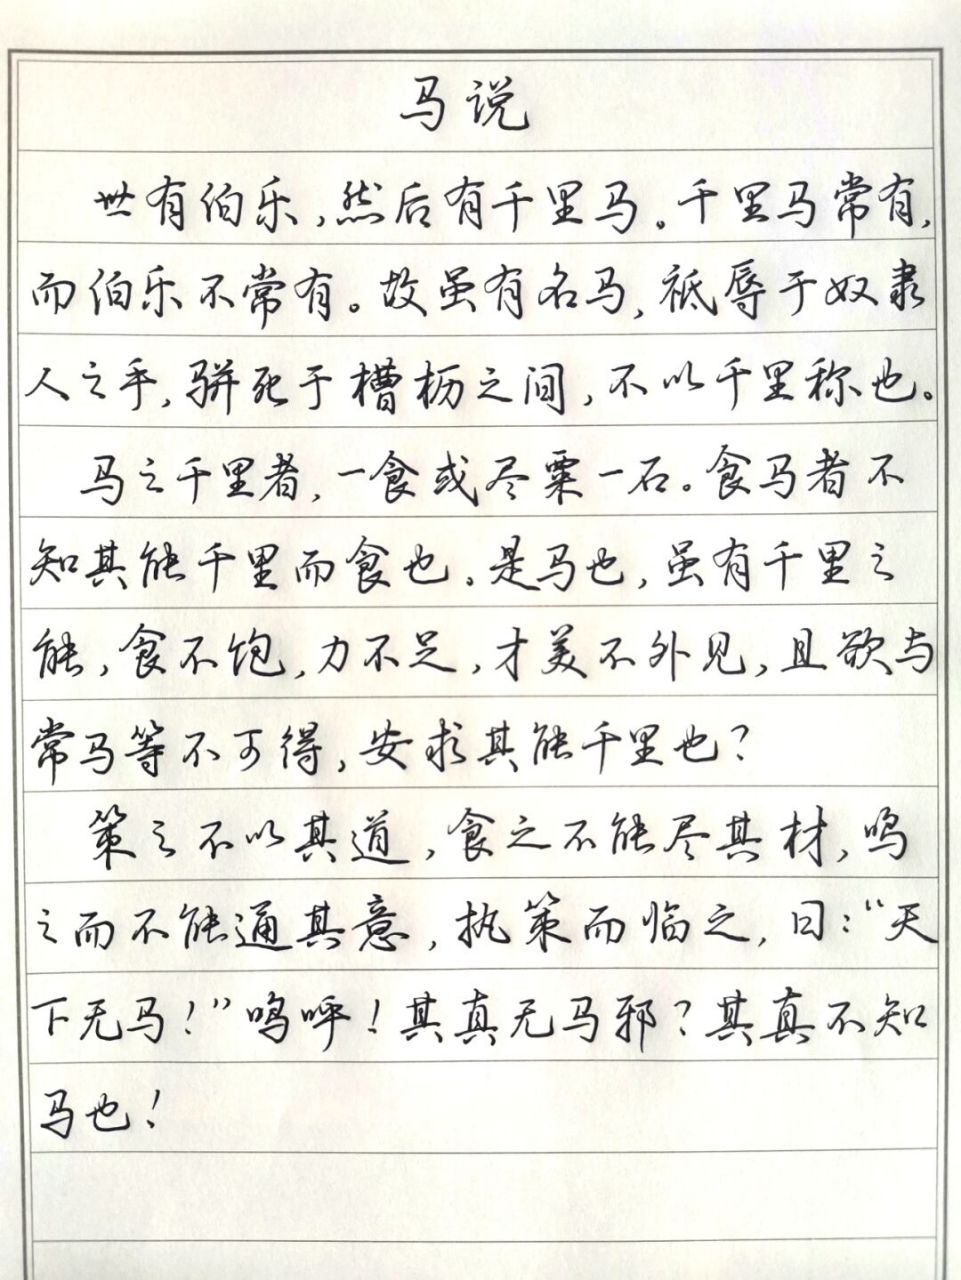 马说
世有伯乐，然后有千里马。千里马常有，
而伯乐不常有。故虽有名马，祗辱于奴隶
人之手，骈死于槽枥之间，不以千里称也。
马之千里者，一食或尽粟一石。食马者不
知其能千里而食也。是马也，虽有千里之
能，食不饱，力不足，才美不外见，且欲与
常马等不可得，安求其能千里也？
策之不以其道，食之不能尽其材，鸣
之而不能通其意，执策而临之，曰：“天
下无马！”呜呼！其真无马邪？其真不知
马也！